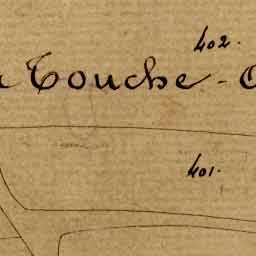 402.
Touche
401.